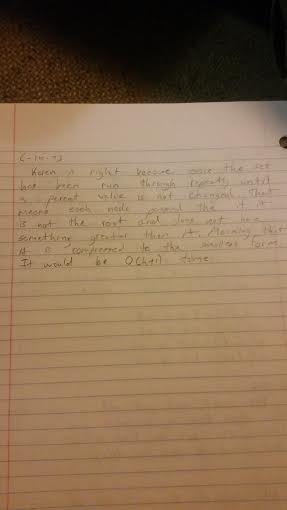 C-14.7)
Karen is right because once the set
has been run through repeatly until
a parent value is not changed. That
means each node passed the if it
is not the root and does not have
something greater than it. Meaning that
it is compressed to the smallest form.
It would be O(h+1) time